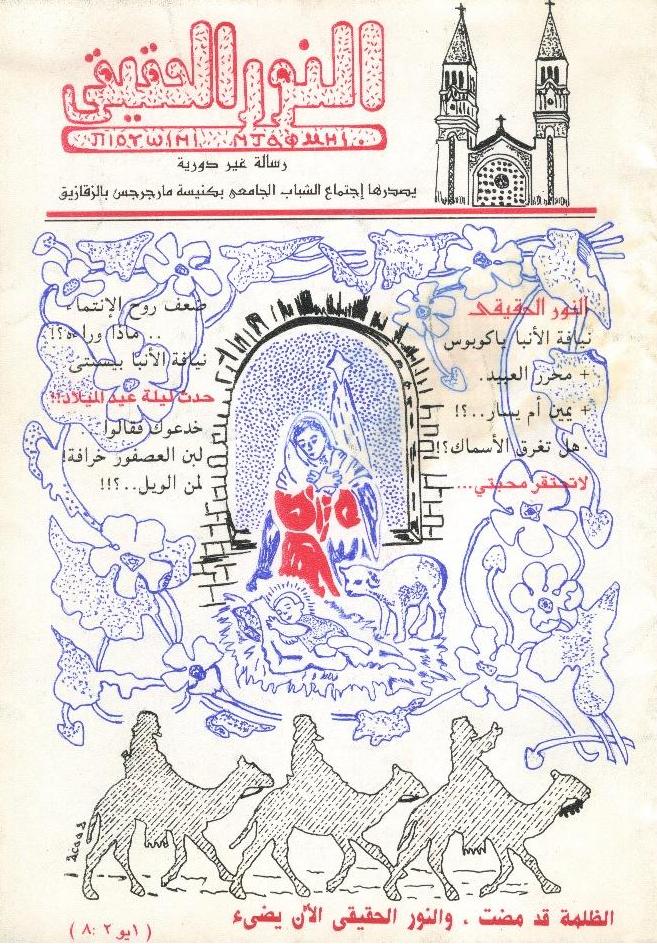 النور الحقيقى
ΠΙΟΥΩΙΝΙ ΝΤΑΦΜΗΙ.
رسالة غير دورية
يصدرها إجتماع الشباب الجامعى بكنيسة مارجرجس بالزقازيق
النور الحقيقى
نيافة الأنبا ياكوبوس
+ محرر العبيد.
+ يمين أم يسار..؟!
هل تغرق الأسماك؟!
لاتحتقر محبتي...
ضعف روح الإنتماء
.. ماذا وراءه؟!
نيافة الأنبا بيسنتى
حدث ليلة عيد الميلاد!!
خدعوك فقالوا
لبن العصفور خرافة!
لمن الويل..؟!!
الظلمة قد مضت ، والنور الحقيقى الآن يضىء
( ١يو ٢ :٨ )